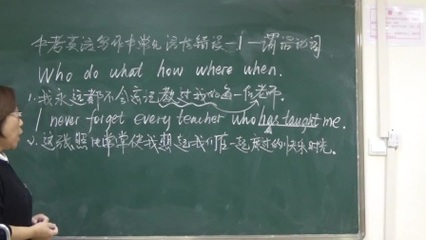 中考英语写作中常见语法错误-1-谓语动词
Who do what how where when.
1.我永远都不会忘记教过我的每一位老师.
I never forget every teacher who has taught me.
2.这张照片常常使我想起我们在一起度过的快乐时光.